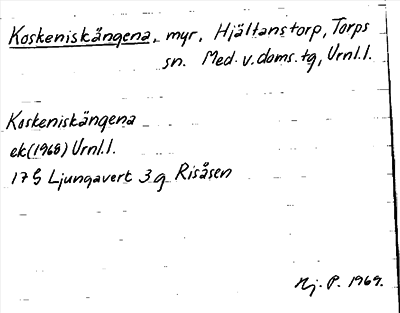 Koskeniskängena, myr, Hjältanstorp, Torps
sn. Med. v. doms. tg, Urnl.l.
Koskeniskängena
ek (1968) Urnl.l.
17 G Ljungavert 3 g Risåsen
Mj. P. 1969.